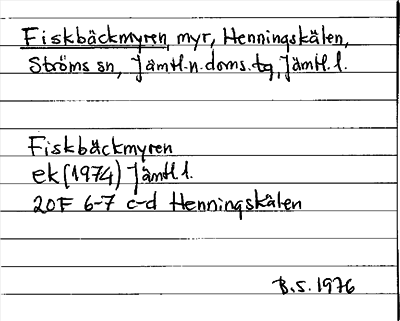 Fiskbäckmyren, myr, Henningskälen,
Ströms sn, Jämtl.n.doms.tg, Jämtl.l.
Fiskbäckmyren
ek (1974) Jämtl l.
20F 6-7 c-d Henningskälen
B.S. 1976